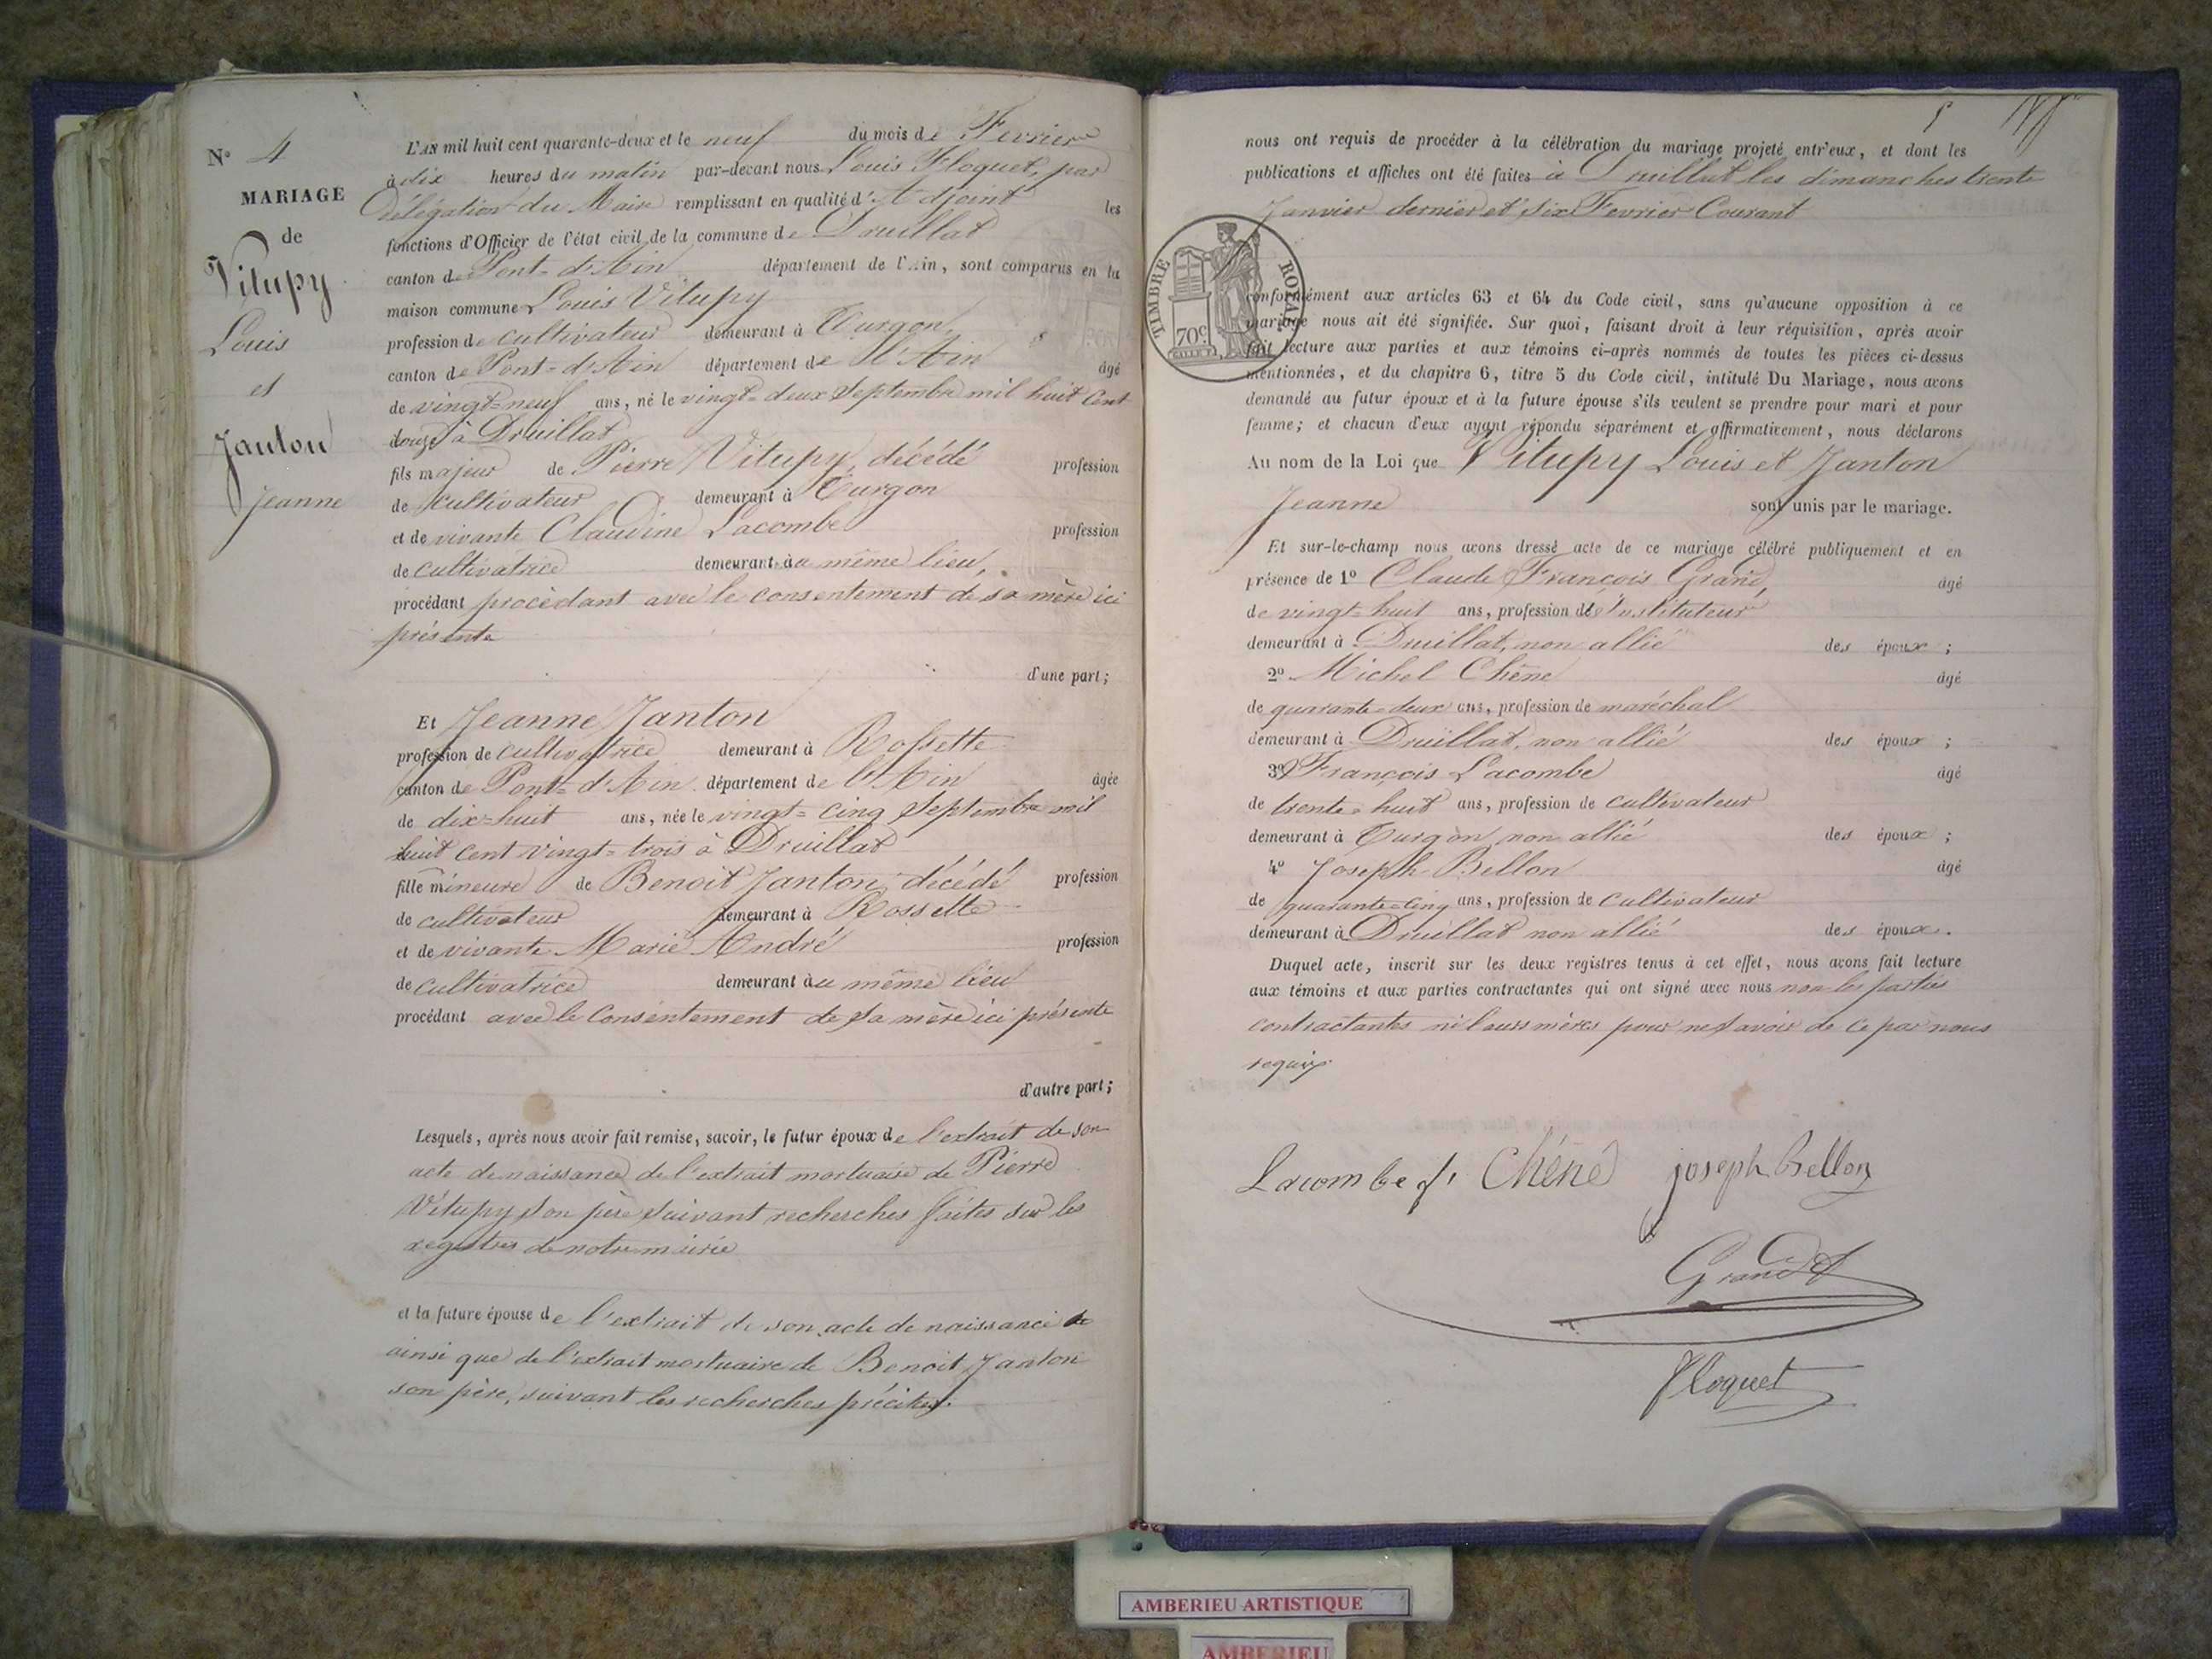 N° 4
MARIAGE
de
Vitupy
Louis
et
Janton
Jeanne
L'AN mil huit cent quarante-deux et le neuf du mois de Fevrier
à dix heures du matin par-devant nous Louis Floquet, par
Délégation du Maire remplissant en qualité d'Adjoint les
fonctions d'Officier de l'état civil de la commune de Druillat
canton de Pont-d'Ain département de l'Ain, sont comparus en la
maison commune Louis Vitupy
profession de cultivateur demeurant à Turgon,
canton de Pont-d'Ain département de l'Ain âgé
de vingt-neuf ans, né le vingt-deux Septembre mil huit Cent
douze à Druillat
fils majeur de Pierre Vitupy, décédé profession
de cultivateur demeurant à Turgon
et de vivante Claudine Lacombe profession
de cultivatrice demeurant au même lieu,
procédant procèdant avec le consentement de sa mère ici
présente
d'une part;
Et Jeanne Janton
profession de cultivatrice demeurant à Rossette
canton de Pont-d'Ain département de l'Ain âgée
de dix-huit ans, née le vingt-cinq Septembre mil
huit cent vingt-trois à Druillat
fille mineure de Benoit Janton, décédé profession
de cultivateur demeurant à Rossette
et de vivante Marie André profession
de cultivatrice demeurant au même lieu
procédant avec le Consentement de sa mère ici présente
d'autre part;
Lesquels, après nous avoir fait remise, savoir, le futur époux de l'extrait de son
acte de naissance de l'extrait mortuaire de Pierre
Vitupy son père suivant recherches faites sur les
registres de notre mairie
et la future épouse de l'extrait de son acte de naissance
ainsi que de l'extrait mortuaire de Benoit Janton
son père, suivant les recherches précitées.
5
nous ont requis de procéder à la célébration du mariage projeté entr'eux, et dont les
publications et affiches ont été faites à Druillat les dimanches trente
Janvier dernier et six Fevrier Courant
TIMBRE ROYAL
70c
conformément aux articles 63 et 64 du Code civil, sans qu'aucune opposition à ce
mariage nous ait été signifiée. Sur quoi, faisant droit à leur réquisition, après avoir
fait lecture aux parties et aux témoins ci-après nommés de toutes les pièces ci-dessus
mentionnées, et du chapitre 6, titre 5 du Code civil, intitulé Du Mariage, nous avons
demandé au futur époux et à la future épouse s'ils veulent se prendre pour mari et pour
femme; et chacun d'eux ayant répondu séparément et affirmativement, nous déclarons
Au nom de la Loi que Vitupy Louis et Janton
Jeanne sont unis par le mariage.
Et sur-le-champ nous avons dressé acte de ce mariage célébré publiquement et en
présence de 1° Claude François Grand, âgé
de vingt-huit ans, profession d'Instituteur
demeurant à Druillat, non allié des époux;
2° Michel Chêne âgé
de quarante-deux ans, profession de maréchal
demeurant à Druillat, non allié des époux;
3° François Lacombe âgé
de trente-huit ans, profession de cultivateur
demeurant à Turgon non allié des époux;
4° Joseph Bellon âgé
de quarante-cinq ans, profession de Cultivateur
demeurant à Druillat non allié des époux.
Duquel acte, inscrit sur les deux registres tenus à cet effet, nous avons fait lecture
aux témoins et aux parties contractantes qui ont signé avec nous non les parties
contractantes ni leurs mères pour ne savoir de ce par nous
requis
Lacombe f. Chêne joseph Bellon
Grand
Floquet
AMBERIEU ARTISTIQUE
AMBERIEU